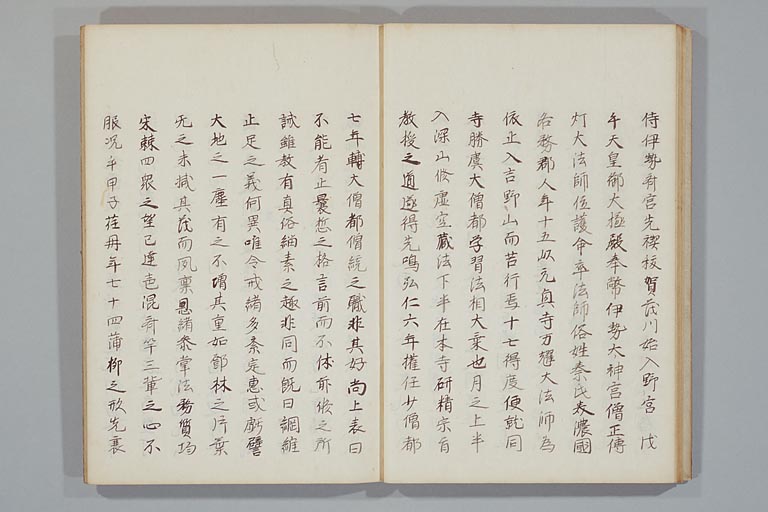 侍伊勢斎宮先禊於賀茂川始入野宮 戊
午天皇御大極殿奉幣伊勢大神宮僧正傳
灯大法師位護命卒法師俗姓秦氏美濃國
各務郡人年十五以元真寺万耀大法師為
依止入吉野山而苦行焉十七得度便就同
寺勝虞大僧都学習法相大乗也月之上半
入深山修虚空蔵法下半在本寺研精宗旨
教授之道遂得先鳴弘仁六年擢任少僧都
七年轉大僧都僧統之職非其好尚上表曰
不能者止曩哲之格言前而不休前俊之所
誡雖教有真俗緇素之趣非同而既曰調維
止足之義何異唯今戒緒多紊定惠或虧譬
大地之一塵有之不増其重如鄧林之片葉
无之未減其茂而夙禀恩緒忝掌法務質場
宋棘四衆之望已違壱混斉竽三輩之心不
服况乎甲子荏苒年七十四蒲柳之形先衰